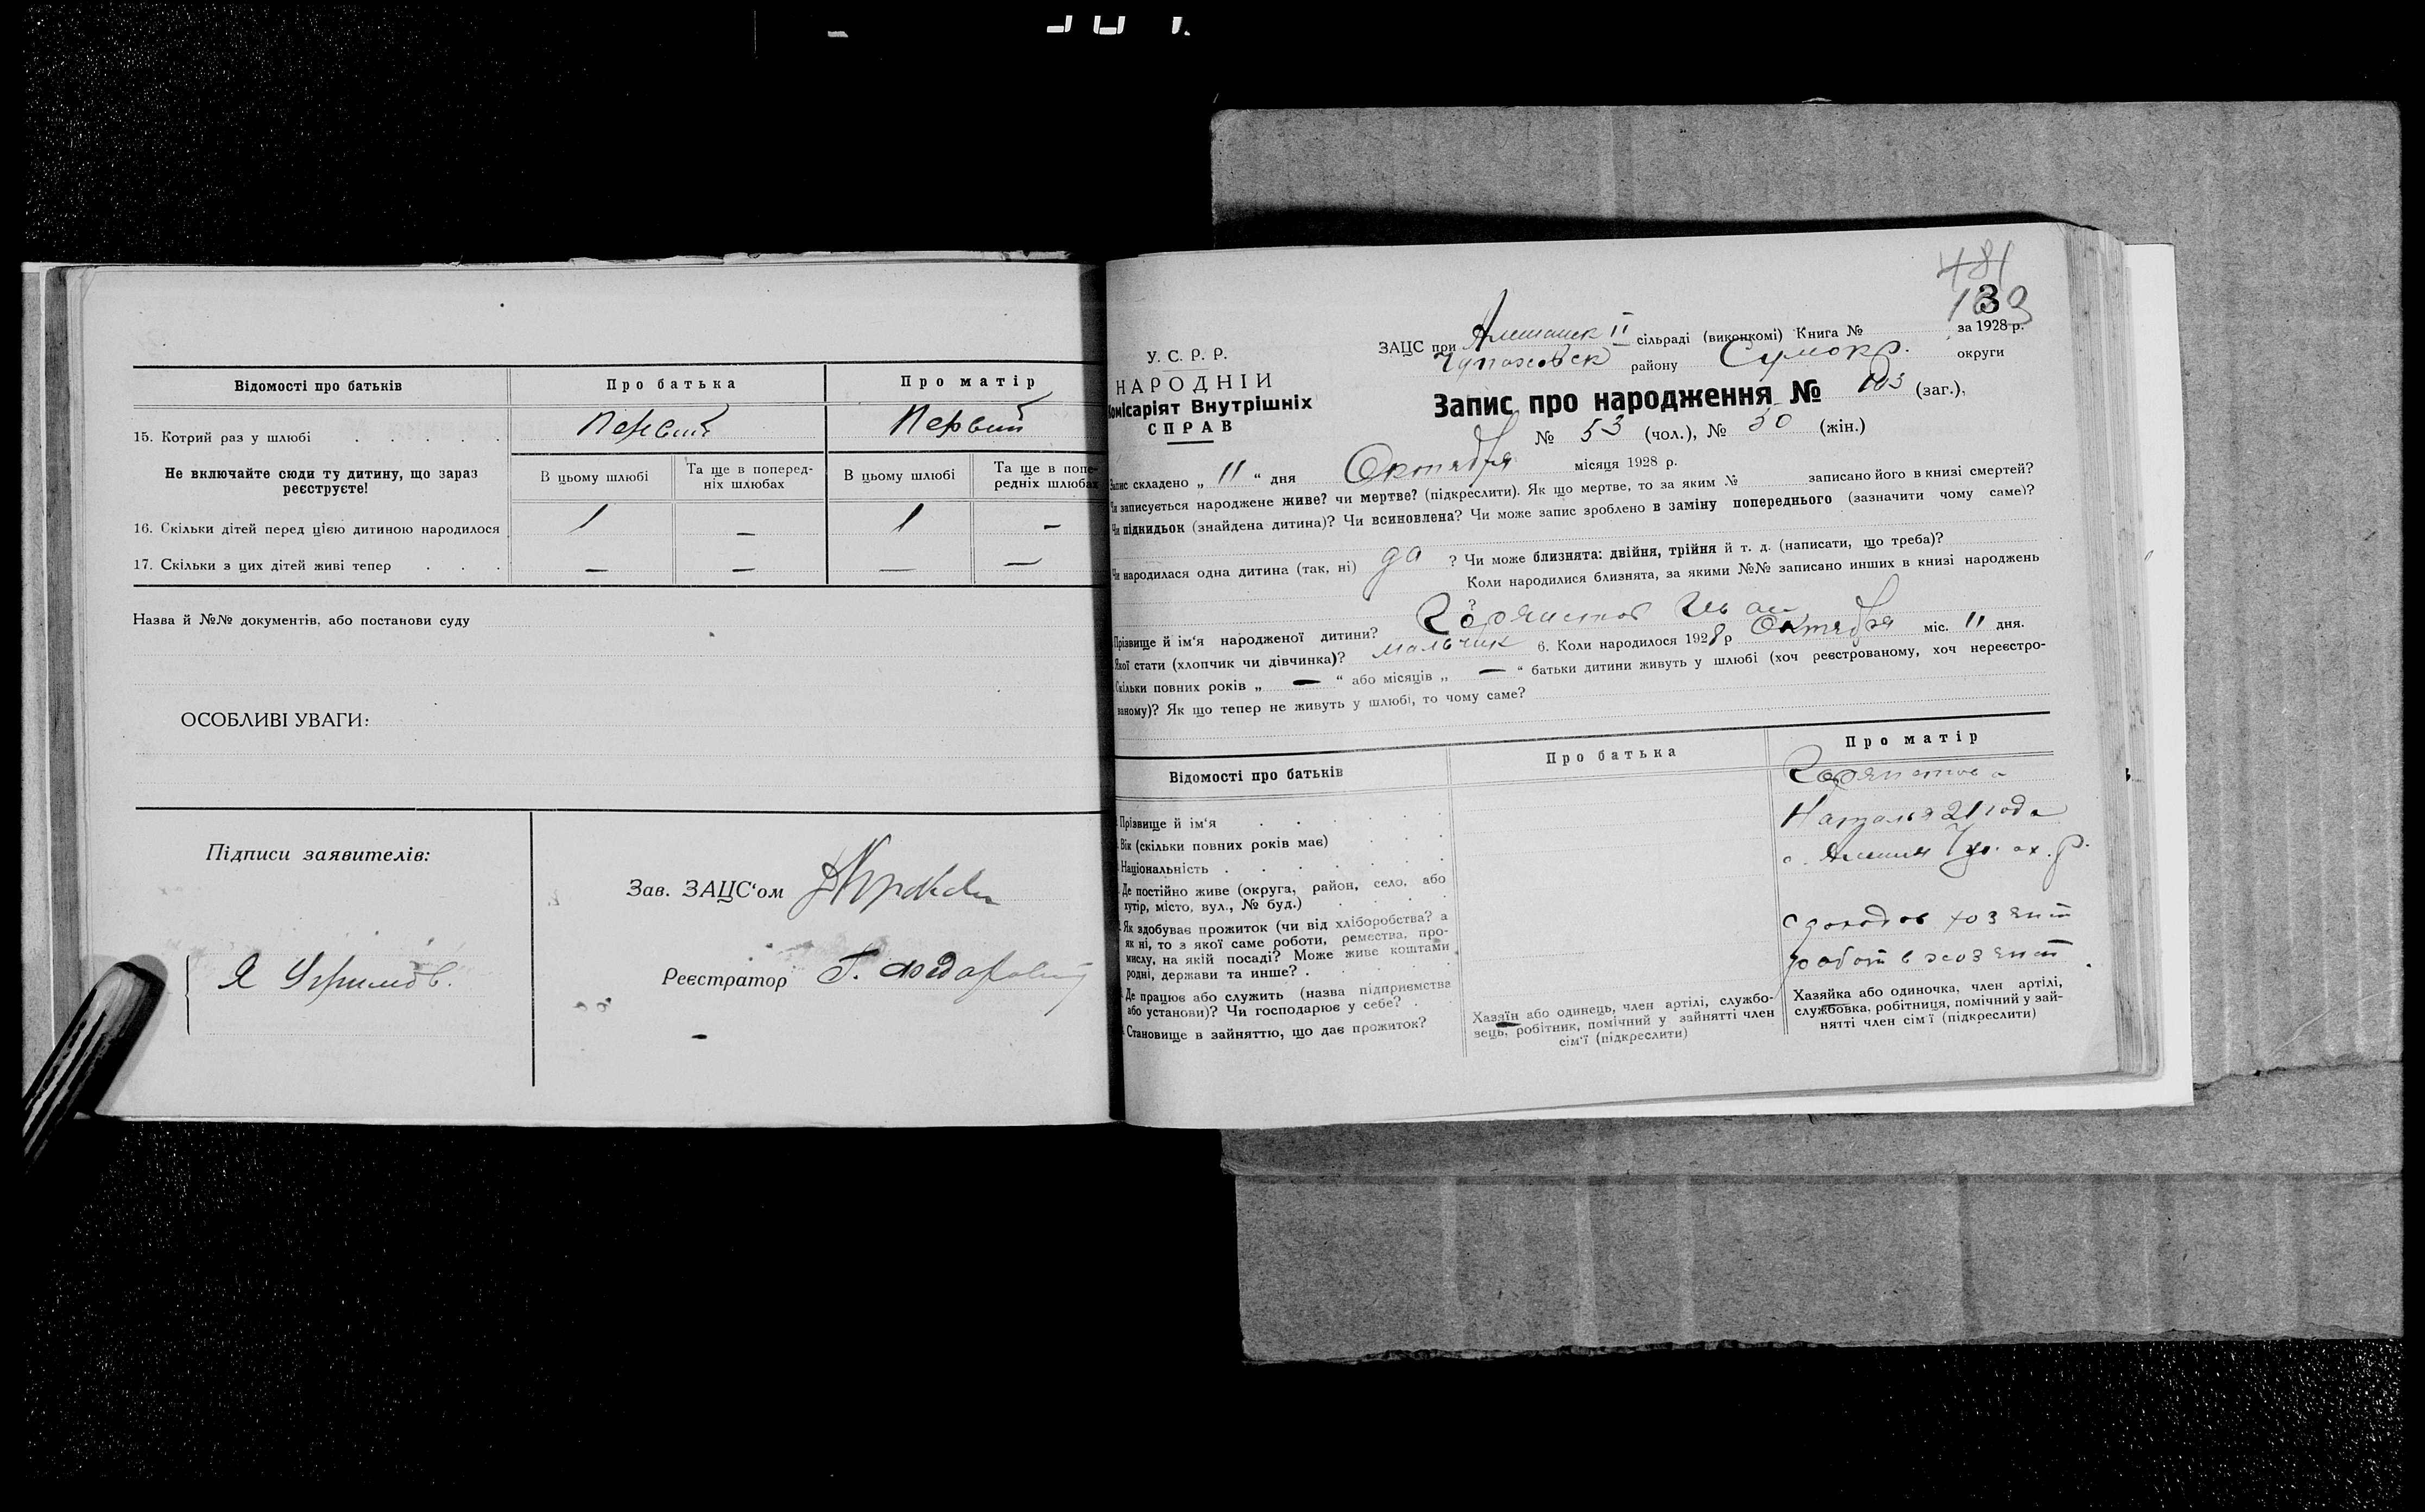 Відомості про батьків
Про батька
Про матір
15. Котрий раз у шлюбі . . . . .
Первий
Первий
Не включайте сюди ту дитину, що зараз
реєструєте!
В цьому шлюбі
Та ще в поперед-
ніх шлюбах
В цьому шлюбі
Та ще в попе-
редніх шлюбах
16. Скільки дітей перед цією дитиною народилося
1
—
1
—
17. Скільки з цих дітей живі тепер . . .
—
—
—
—
Назва й №№ документів, або постанови суду
ОСОБЛИВІ УВАГИ:
Підписи заявителів:
Зав. ЗАЦС'ом
Реєстратор
481
3
У. С. Р. Р.
НАРОДНІЙ
Комісаріят Внутрішніх
СПРАВ
ЗАЦС при II сільраді (виконкомі) Книга № за 1928 р.
району округи
Запис про народження № 103 (заг.),
№ 53 (чол.), № 50 (жін.)
Запис складено „ 11 “ дня Октября місяця 1928 р.
Чи записується народжене живе? чи мертве? (підкреслити). Як що мертве, то за яким № записано його в книзі смертей?
Чи підкидьок (знайдена дитина)? Чи всиновлена? Чи може запис зроблено в заміну попереднього (зазначити чому саме)?
Чи народилася одна дитина (так, ні) да ? Чи може близнята: двійня, трійня й т. д. (написати, що треба)?
Коли народилися близнята, за якими №№ записано инших в книзі народжень
?
Прізвище й ім'я народженої дитини? Иван
Якої стати (хлопчик чи дівчинка)? мальчик 6. Коли народилося 1928 р Октября міс. 11 дня.
Скільки повних років „ — “ або місяців „ — “ батьки дитини живуть у шлюбі (хоч реєстрованому, хоч нереєстро-
ваному)? Як що тепер не живуть у шлюбі, то чому саме?
Відомості про батьків
Про батька
Про матір
Прізвище й ім'я . . . . .
Вік (скільки повних років має) . .
Національність . . . . .
Наталья 21 года
Де постійно живе (округа, район, село, або
хутір, місто, вул., № буд.) . . . .
Як здобуває прожиток (чи від хліборобства? а
як ні, то з якої саме роботи, ремества, про-
мислу, на якій посаді? Може живе коштами
родні, держави та инше? . . . . .
Де працює або служить (назва підприємства
або установи)? Чи господарює у себе? . .
Становище в зайняттю, що дає прожиток?
Хазяїн або одинець, член артілі, службо-
вець, робітник, помічний у зайнятті член
сім'ї (підкреслити)
Хазяйка або одиночка, член артілі,
службовка, робітниця, помічний у зай-
нятті член сім'ї (підкреслити)